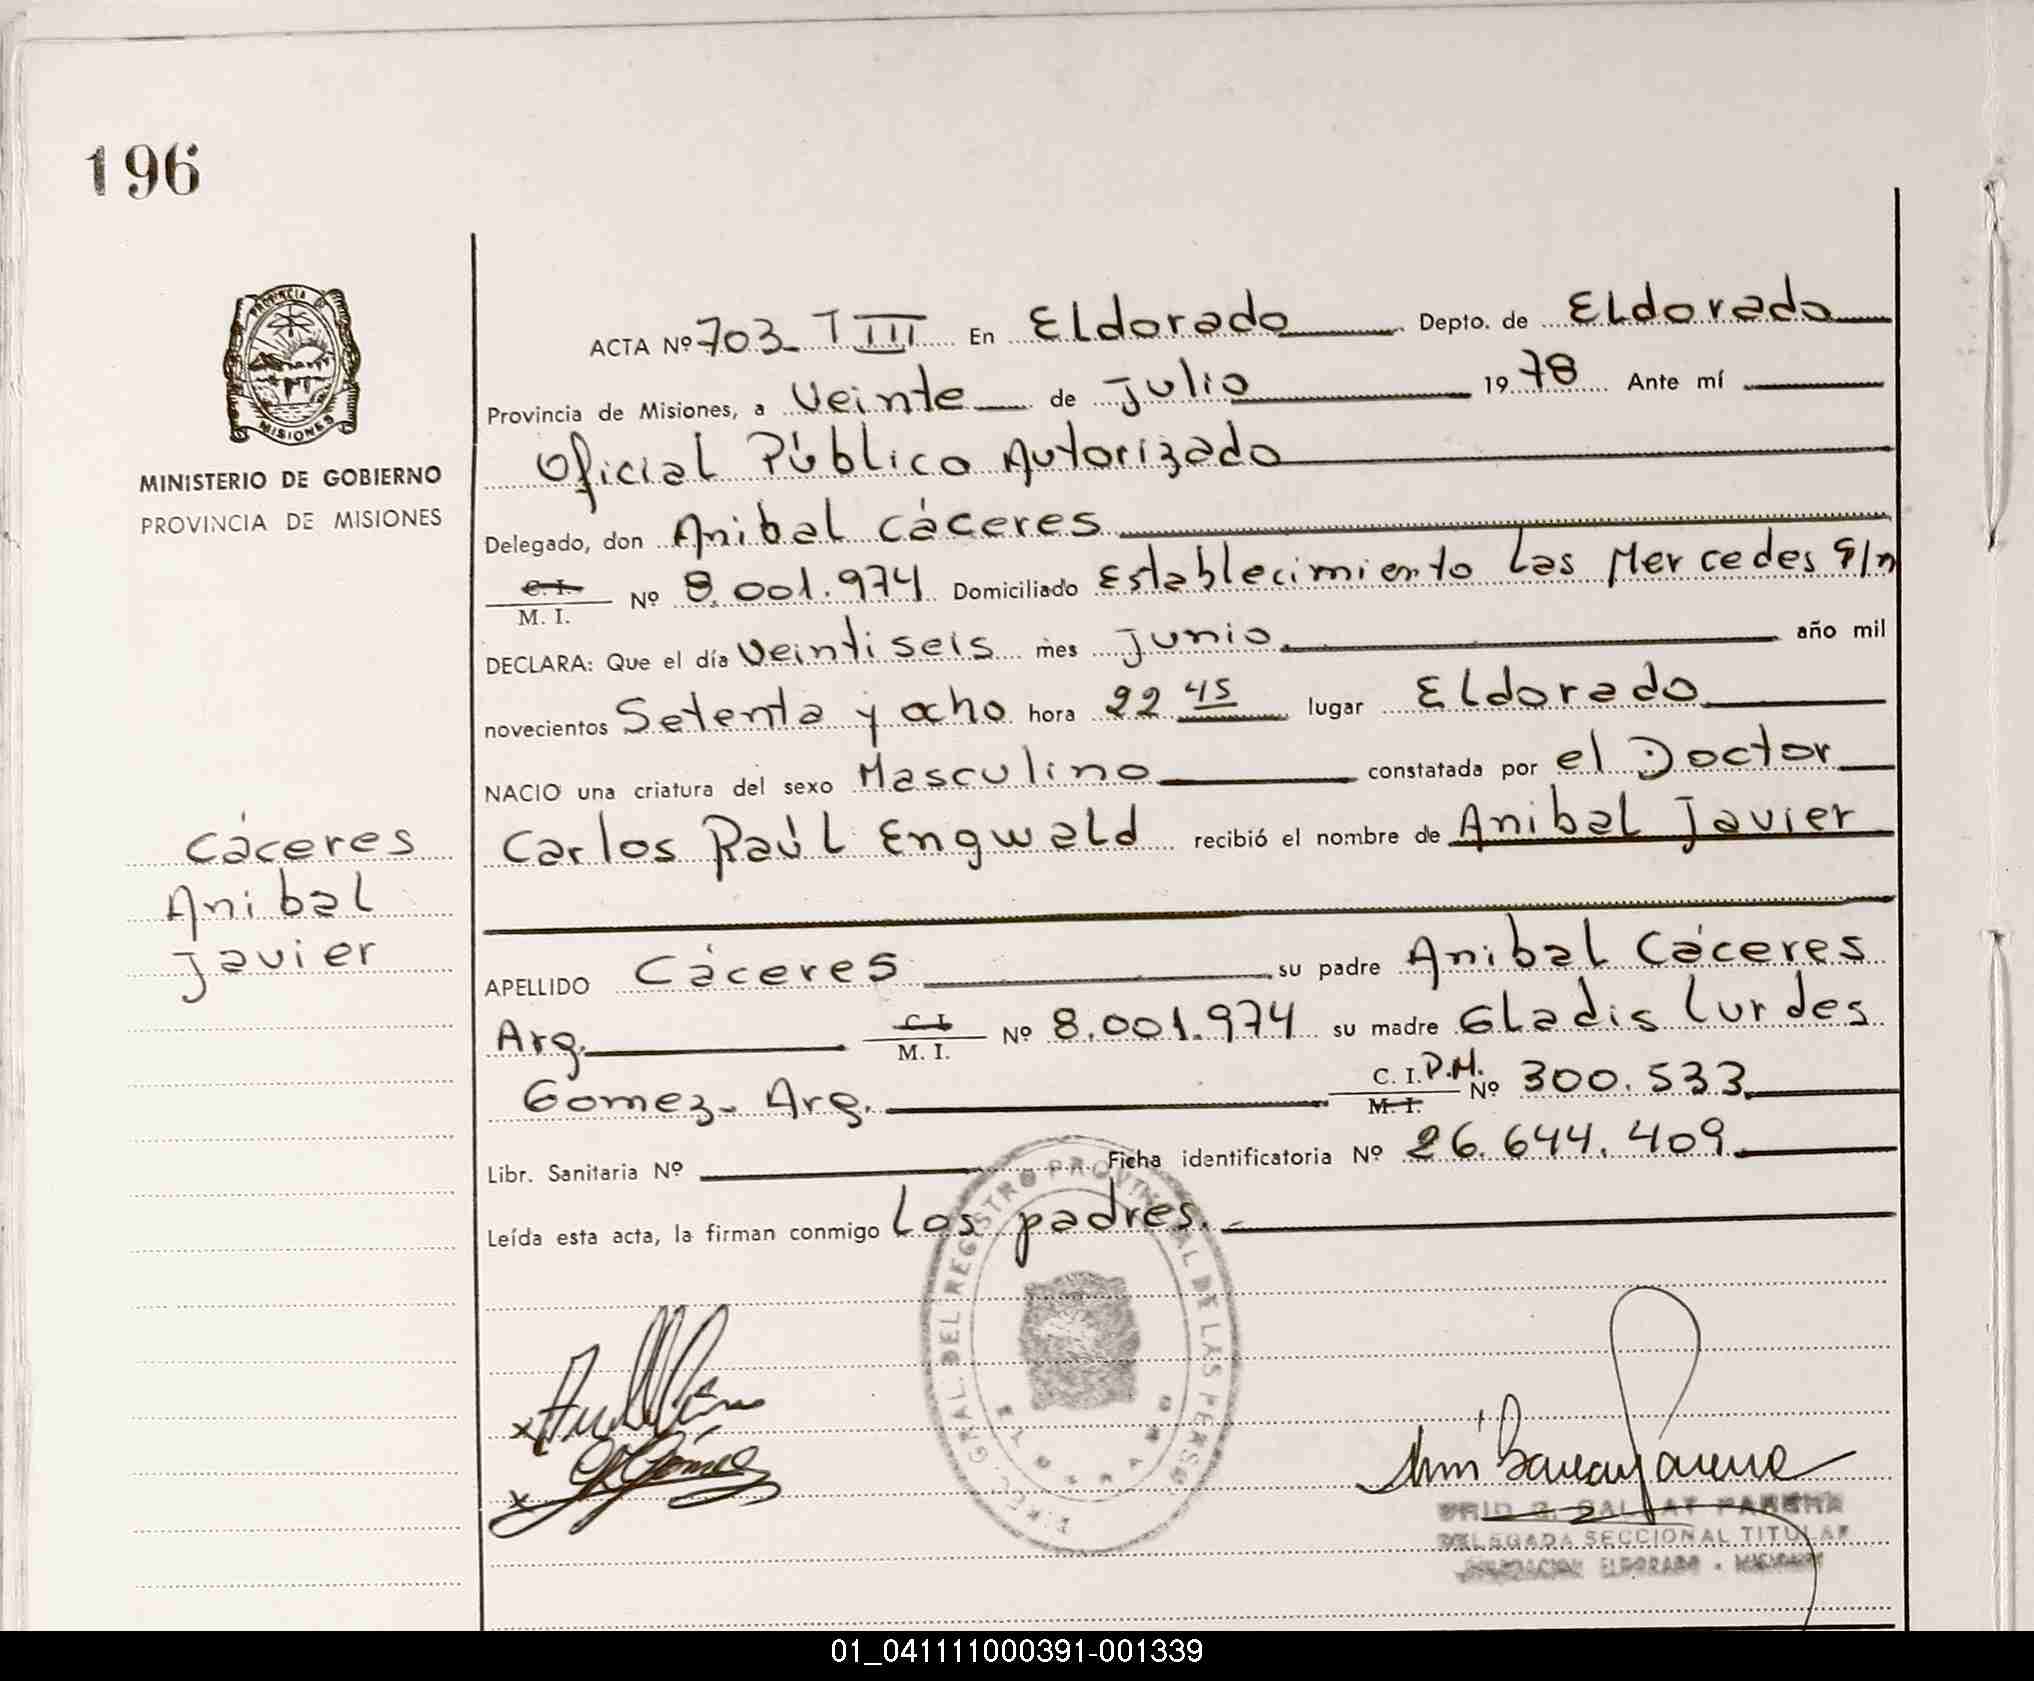 196
PROVINCIA
MISIONES
MINISTERIO DE GOBIERNO
PROVINCIA DE MISIONES
ACTA Nº 703 T III En Eldorado Depto. de Eldorado
Provincia de Misiones, a Veinte de Julio 1978 Ante mí
Oficial Público Autorizado
Delegado, don Anibal Cáceres
C. I.
M. I. Nº 8.001.974 Domiciliado Establecimiento Las Mercedes S/n
DECLARA: Que el día Veintiseis mes Junio año mil
novecientos Setenta y ocho hora 22 45 lugar Eldorado
NACIO una criatura del sexo Masculino constatada por el Doctor
Carlos Raúl Engwald recibió el nombre de Anibal Javier
Cáceres
Anibal
Javier
APELLIDO Cáceres su padre Anibal Cáceres
Arg. C. I. M. I. Nº 8.001.974 su madre Gladis Lurdes
Gomez - Arg. C. I. P.M. M. I. Nº 300.533
Libr. Sanitaria Nº Ficha identificatoria Nº 26.644.409
Leída esta acta, la firman conmigo Los padres.
DIREC. GRAL. DEL REGISTRO PROVINCIAL DE LAS PERSO
ELDORADO
x
x G Gómez
DELEGADA SECCIONAL TITULAR
ELDORADO
01_041111000391-001339